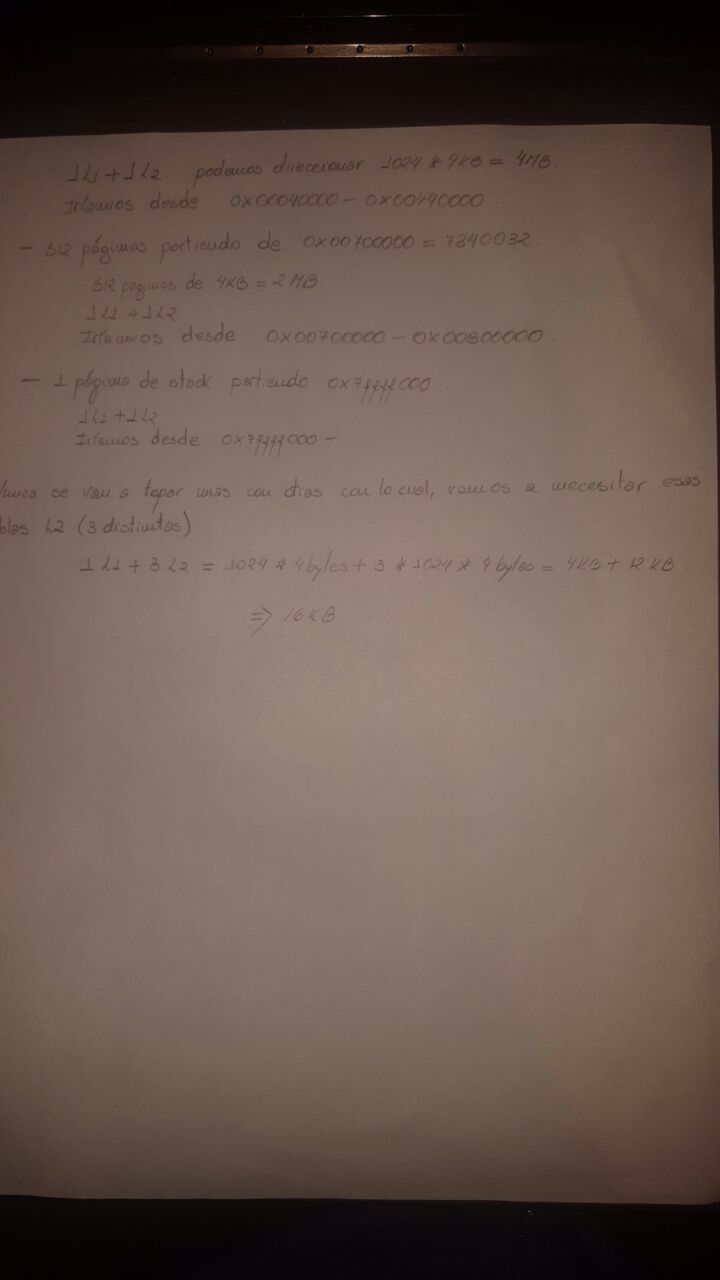 1L1 + 1L2 podemos direccionar 1024 * 4KB = 4MB.
Iríamos desde 0x00040000 - 0x00440000.
- 512 páginas partiendo de 0x00700000 = 7340032.
512 paginas de 4KB = 2MB.
1L1 + 1L2
Iríamos desde 0x00700000 - 0x00800000.
- 1 página de stack partiendo 0x7ffff000.
1L1 + 1L2
Iríamos desde 0x7ffff000 -
se van a tapar unas con otras con lo cual, vamos a necesitar esas
blas L2 (3 distintas)
1L1 + 3L2 = 1024 * 4bytes + 3 * 1024 * 4 bytes = 4KB + 12KB
=> 16KB